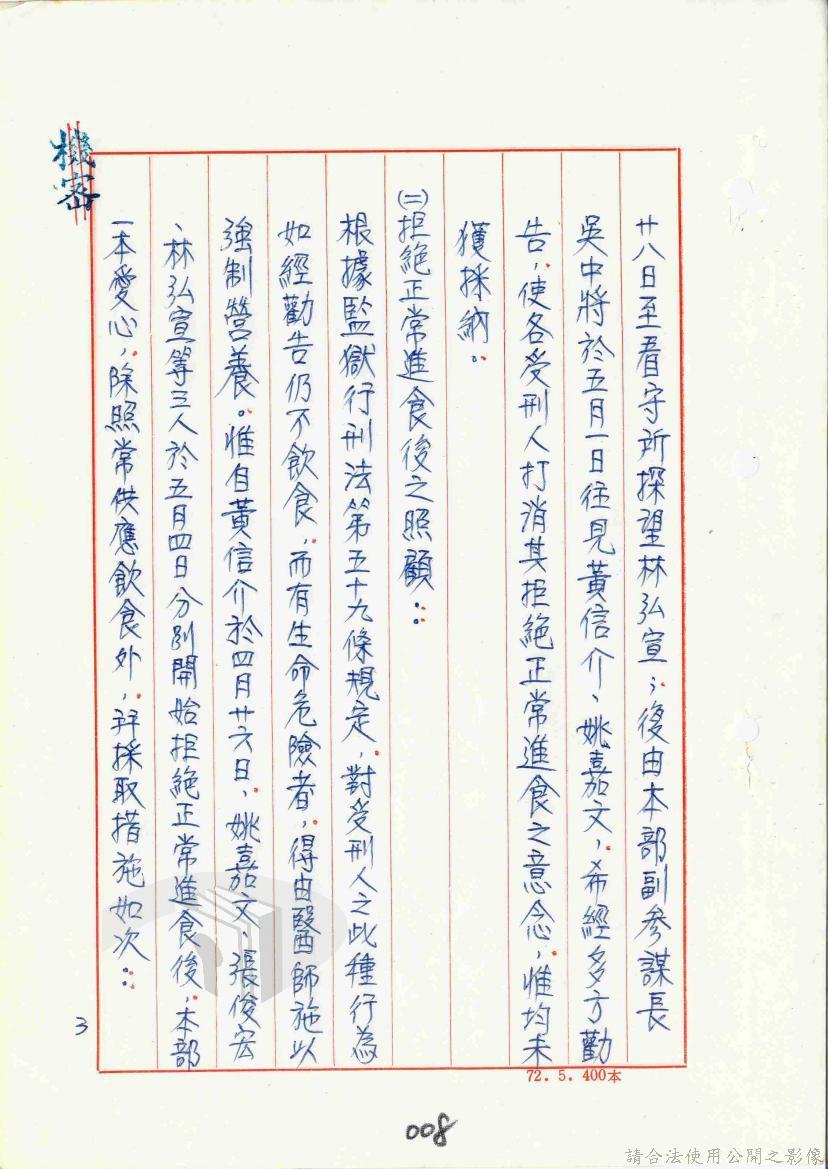 機密
廿八日至看守所探望林弘宣；後由本部副參謀長
吳中將於五月一日往見黃信介、姚嘉文，希經多方勸
告，使各受刑人打消其拒絕正常進食之意念，惟均未
獲採納。
㈡拒絕正常進食後之照顧：
根據監獄行刑法第五十九條規定，對受刑人之此種行為
如經勸告仍不飲食，而有生命危險者，得由醫師施以
強制營養。惟自黃信介於四月廿六日，姚嘉文、張俊宏
、林弘宣等三人於五月四日分別開始拒絕正常進食後，本部
一本愛心，除照常供應飲食外，并採取措施如次：
3
72. 5. 400本
008
請合法使用公開之影像